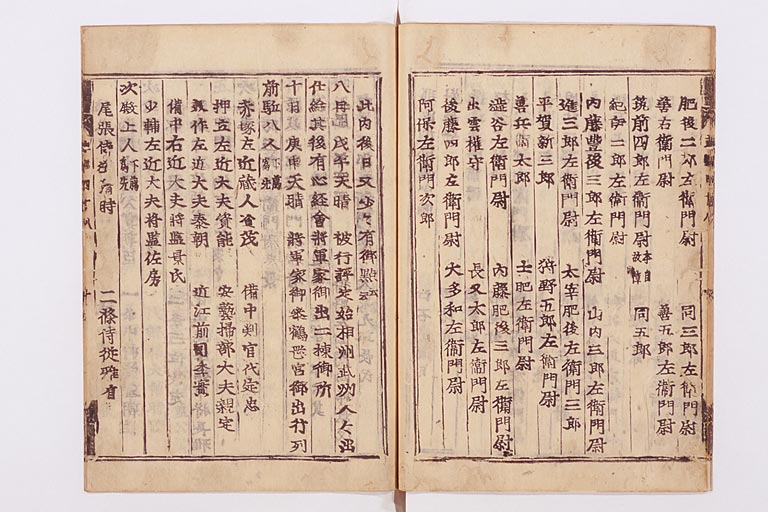 肥後二郎左衛門尉 同三郎左衛門尉
善右衛門尉 善五郎左衛門尉
筑前四郎左衛門尉 本自故障 同五郎
紀伊二郎左衛門尉
内藤豊後三郎左衛門尉 山内三郎左衛門尉
進三郎左衛門尉 太宰肥後左衛門三郎
平賀新三郎 狩野五郎左衛門尉
善兵衛太郎 土肥左衛門尉
澁谷左衛門尉 内藤肥後三郎左衛門尉
出雲權守 長又太郎左衛門尉
後藤四郎左衛門尉 大多和左衛門尉
阿保左衛門次郎
此内後日又少々有御點云云
八日 戊午天晴 被行評定始相州武州人々出
仕給其後有心經會將軍家御出二棟御所
十日 庚申天晴 將軍家御參鶴岡宮御出行列
前駈八人 下﨟為先
赤塚左近藏人資茂 備中判官代定忠
押立左近大夫資能 安藝掃部大夫親定
美作左近大夫泰朝 近江前司季實
備中右近大夫將監景氏
少輔左近大夫將監佐房
次殿上人 下﨟為先
尾張侍從清時 二條侍從雅有